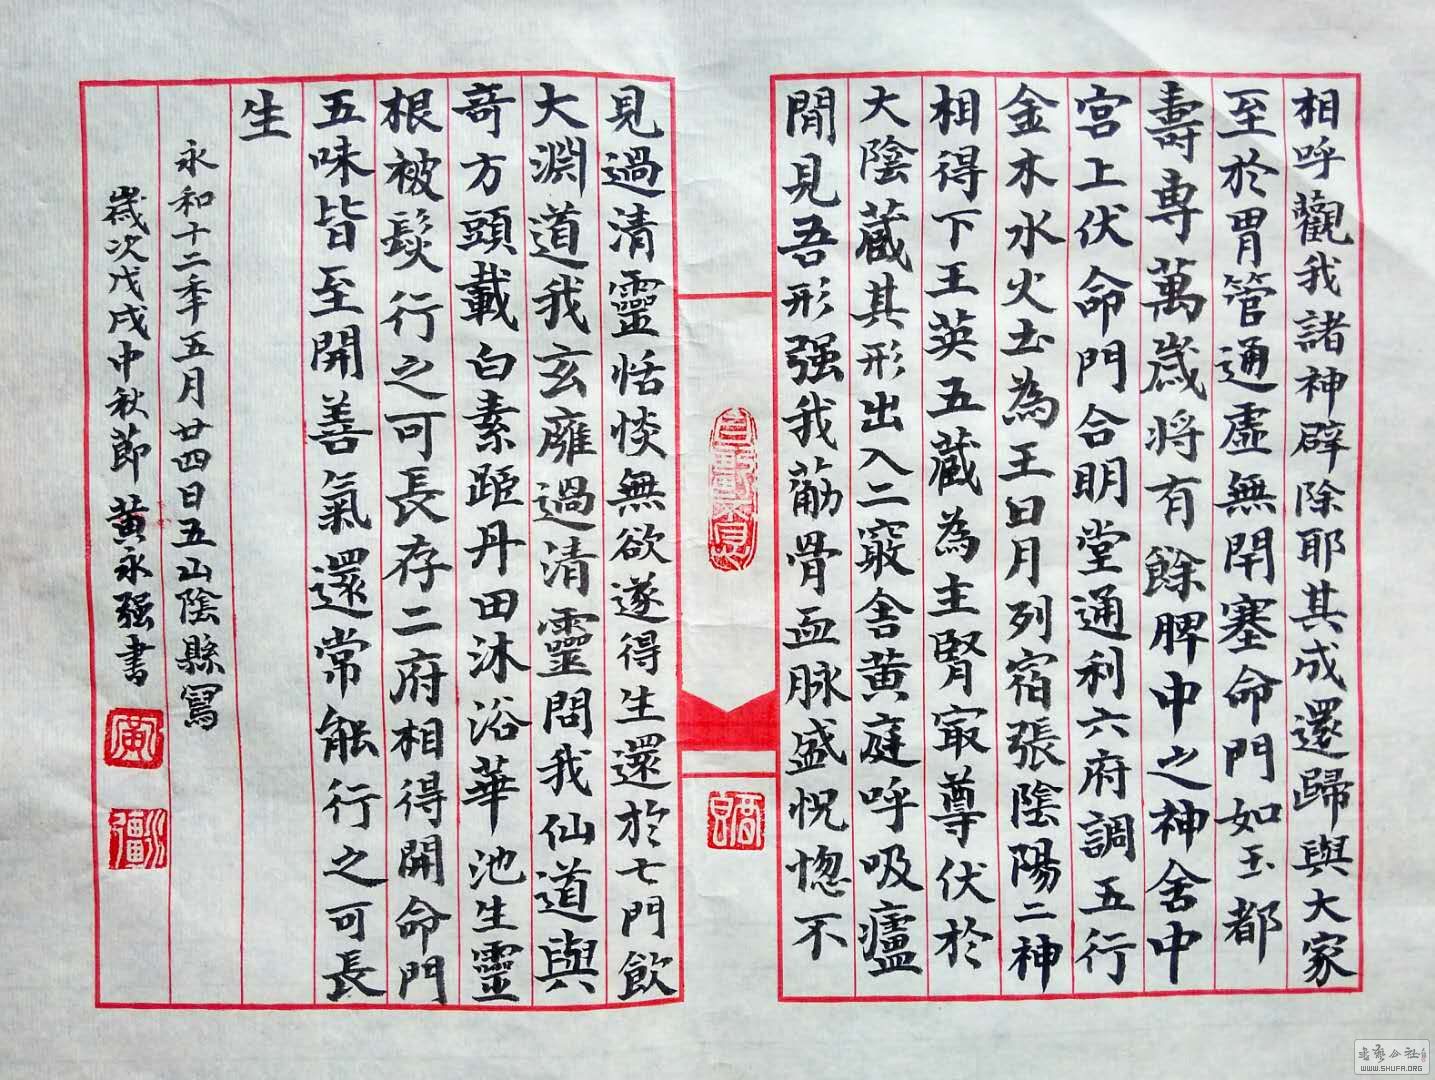 相呼觀我諸神辟除耶其成還歸與大家
至於胃管通虛無閉塞命門如玉都
壽專萬歲将有餘脾中之神舍中
宮上伏命門合明堂通利六府調五行
金木水火土為王日月列宿張陰陽二神
相得下王英五藏為主腎冣尊伏於
大陰藏其形出入二竅舍黄庭呼吸廬
間見吾形强我葪骨血脉盛怳惚不
見過清靈恬惔無欲遂得生還於七門飲
大淵道我玄癰過清靈問我仙道與
竒方頭載白素距丹田沐浴華池生靈
根被髮行之可長存二府相得開命門
五味皆至開善氣還常能行之可長
生
永和十二年五月廿四日五山陰縣寫
歲次戊戌中秋節 黄永强書
書藝公社
WWW.SHUFA.ORG